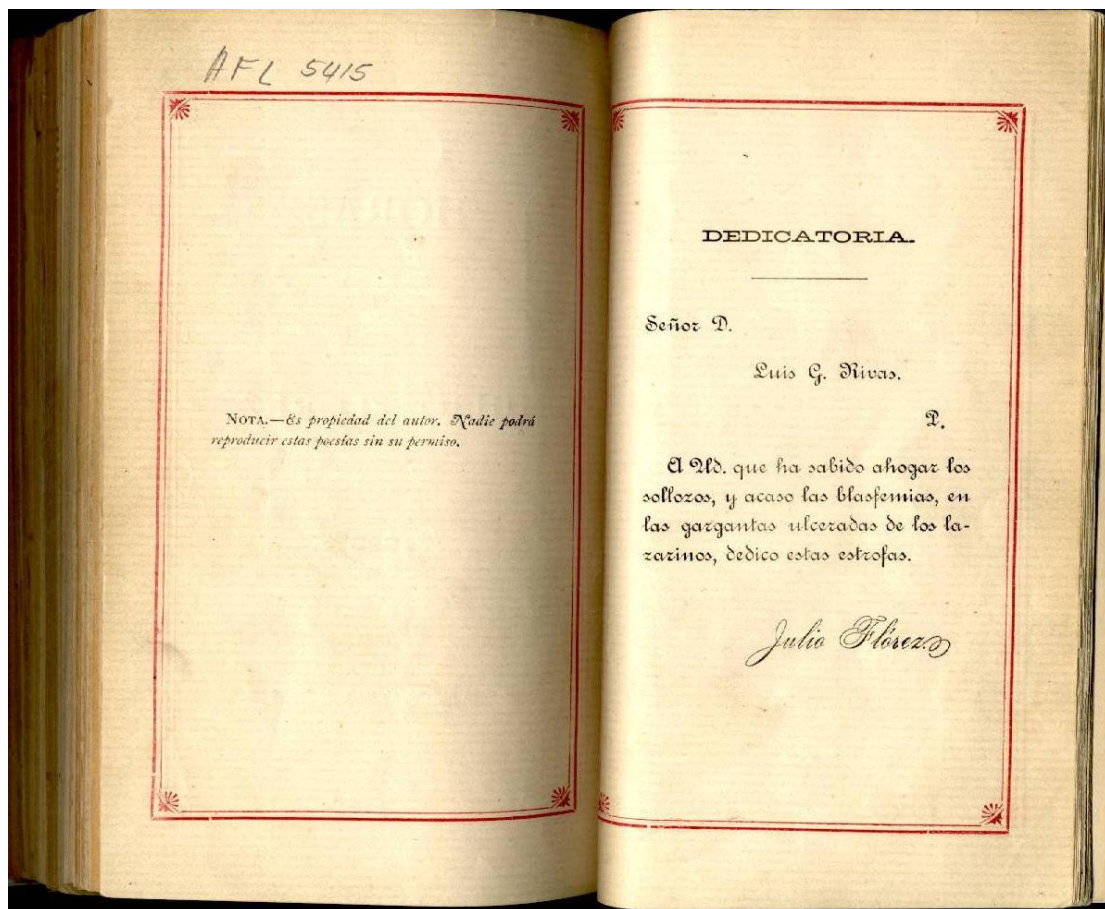 AFL 5415
NOTA.—Es propiedad del autor. Nadie podrá
reproducir estas poesías sin su permiso.
DEDICATORIA.
Señor D.
Luis G. Rivas.
P.
A Ud. que ha sabido ahogar los
sollozos, y acaso las blasfemias, en
las gargantas ulceradas de los la-
zarinos, dedico estas estrofas.
Julio Flórez